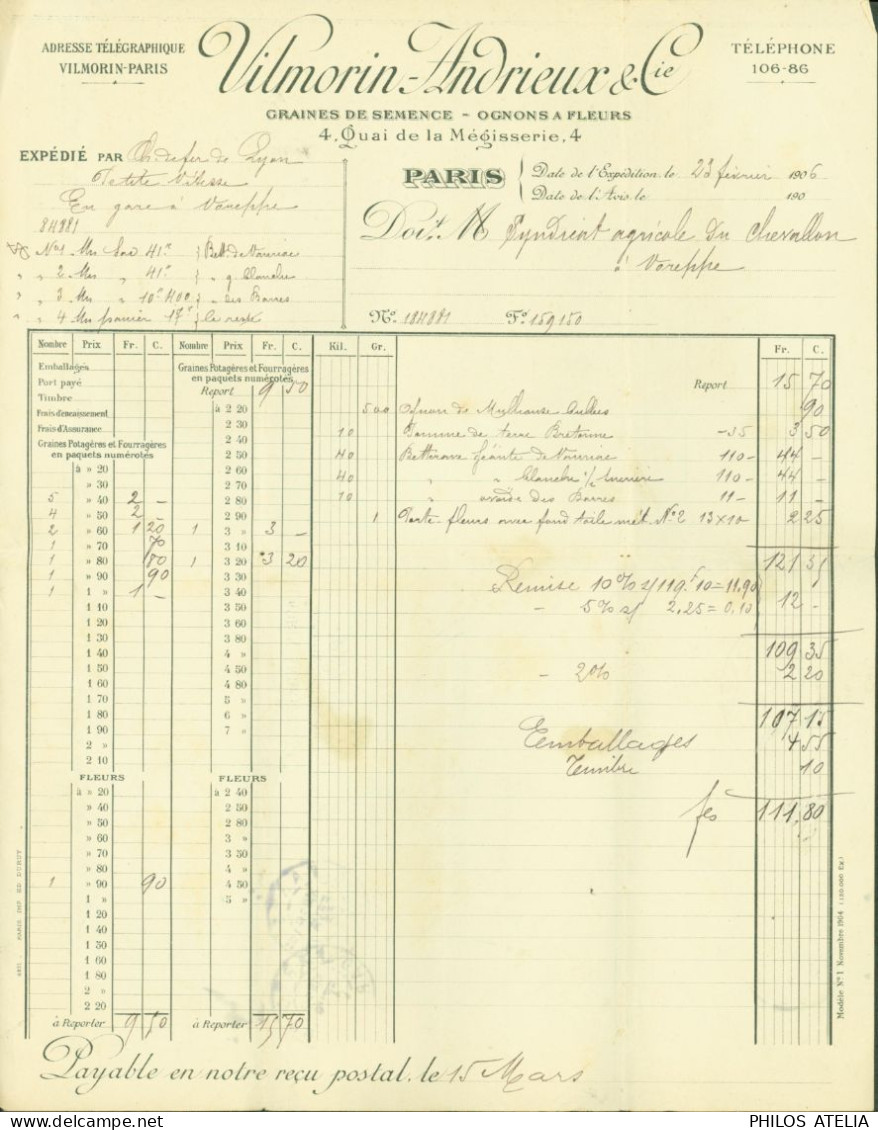 ADRESSE TÉLÉGRAPHIQUE
VILMORIN-PARIS
Vilmorin-Andrieux & Cie
TÉLÉPHONE
106-86
GRAINES DE SEMENCE - OGNONS A FLEURS
4, Quai de la Mégisserie, 4
PARIS
EXPÉDIÉ PAR Ch de fer de Lyon
Petite Vitesse
En gare à Voreppe
84881
Date de l'Expédition, le 23 février 1906
Date de l'Avis, le 190
Doit M Syndicat agricole du Chevallon
à Voreppe
41
" 2 " 41
" 3 "
" 4 panier le reste
No. 184881 Fo. 159150
Nombre Prix Fr. C. Nombre Prix Fr. C. Kil. Gr. Fr. C.
Emballages
Port payé
Timbre
Frais d'encaissement
Frais d'Assurance
Graines Potagères et Fourragères
en paquets numérotés
à » 20
» 30
5 » 40 2 -
4 » 50 2 -
2 » 60 1 20
1 » 70 70
1 » 80 80
1 » 90 90
1 1 » 1 -
1 10
1 20
1 30
1 40
1 50
1 60
1 70
1 80
1 90
2 »
2 10
FLEURS
à » 20
» 40
» 50
» 60
» 70
» 80
1 » 90 90
1 »
1 20
1 40
1 50
1 60
1 80
2 »
2 20
à Reporter 9 50
Graines Potagères et Fourragères
en paquets numérotés
Report 9 50
à 2 20
2 30
2 40
2 50
2 60
2 70
2 80
2 90
1 3 » 3 -
3 10
1 3 20 3 20
3 30
3 40
3 50
3 60
4 »
4 50
4 80
5 »
6 »
7 »
FLEURS
à 2 40
2 50
2 80
3 »
3 50
4 »
4 50
5 »
à Reporter 15 70
Report 15 70
500 Ognon de Mulhouse 90
10 Pomme de terre Bretonne -35 3 50
40 Betterave Géante de Vauriac 110- 44 -
40 " " blanche 110- 44 -
10 " ovoïde des Barres 11- 11 -
1 Porte-fleurs avec fond toile mét. No 2 13x10 2 25
121 35
Remise 10% s/119f10=11.90
- 5% s/ 2,25=0,10 12 -
109 35
- 2% 2 20
107 15
Emballages 4 55
Timbre 10
fcs 111,80
PARIS IMP. ED. DURUY
Modèle No 1 Novembre 1904
Payable en notre reçu postal, le 15 Mars
PHILOS ATELIA